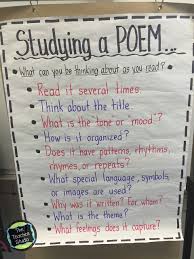 Studying a POEM...
What can you be thinking about as you read?
Read it several times.
Think about the title.
What is the tone or "mood"?
How is it organized?
Does it have patterns, rhythms,
rhymes, or repeats?
What special language, symbols,
or images are used?
Why was it written? For whom?
What is the theme?
What feelings does it capture?
The
Teacher
Studio